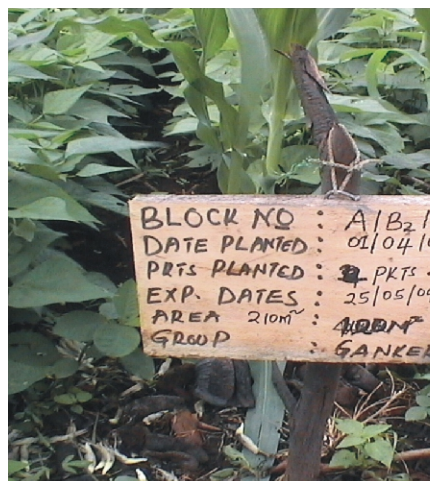 BLOCK NO : A/B2/
DATE PLANTED: 01/04/0
PKTS PLANTED : PKTS
EXP. DATES : 25/05/0
AREA 210m² :
GROUP : GANKE